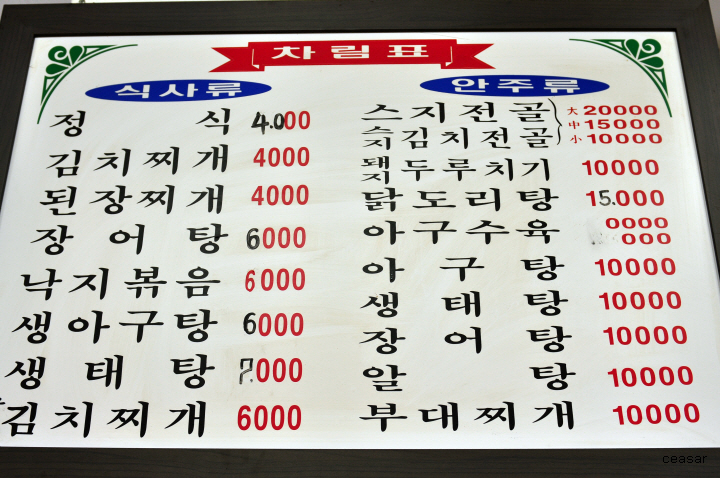 차림표
식사류
정 식 4.000
김치찌개 4000
된장찌개 4000
장 어 탕 6000
낙지볶음 6000
생아구탕 6000
생 태 탕 7.000
김치찌개 6000
안주류
스지전골 大 20000
中 15000
스지김치전골 小 10000
돼지두루치기 10000
닭도리탕 15.000
아구수육 0000
000
아 구 탕 10000
생 태 탕 10000
장 어 탕 10000
알 탕 10000
부대찌개 10000
ceasar